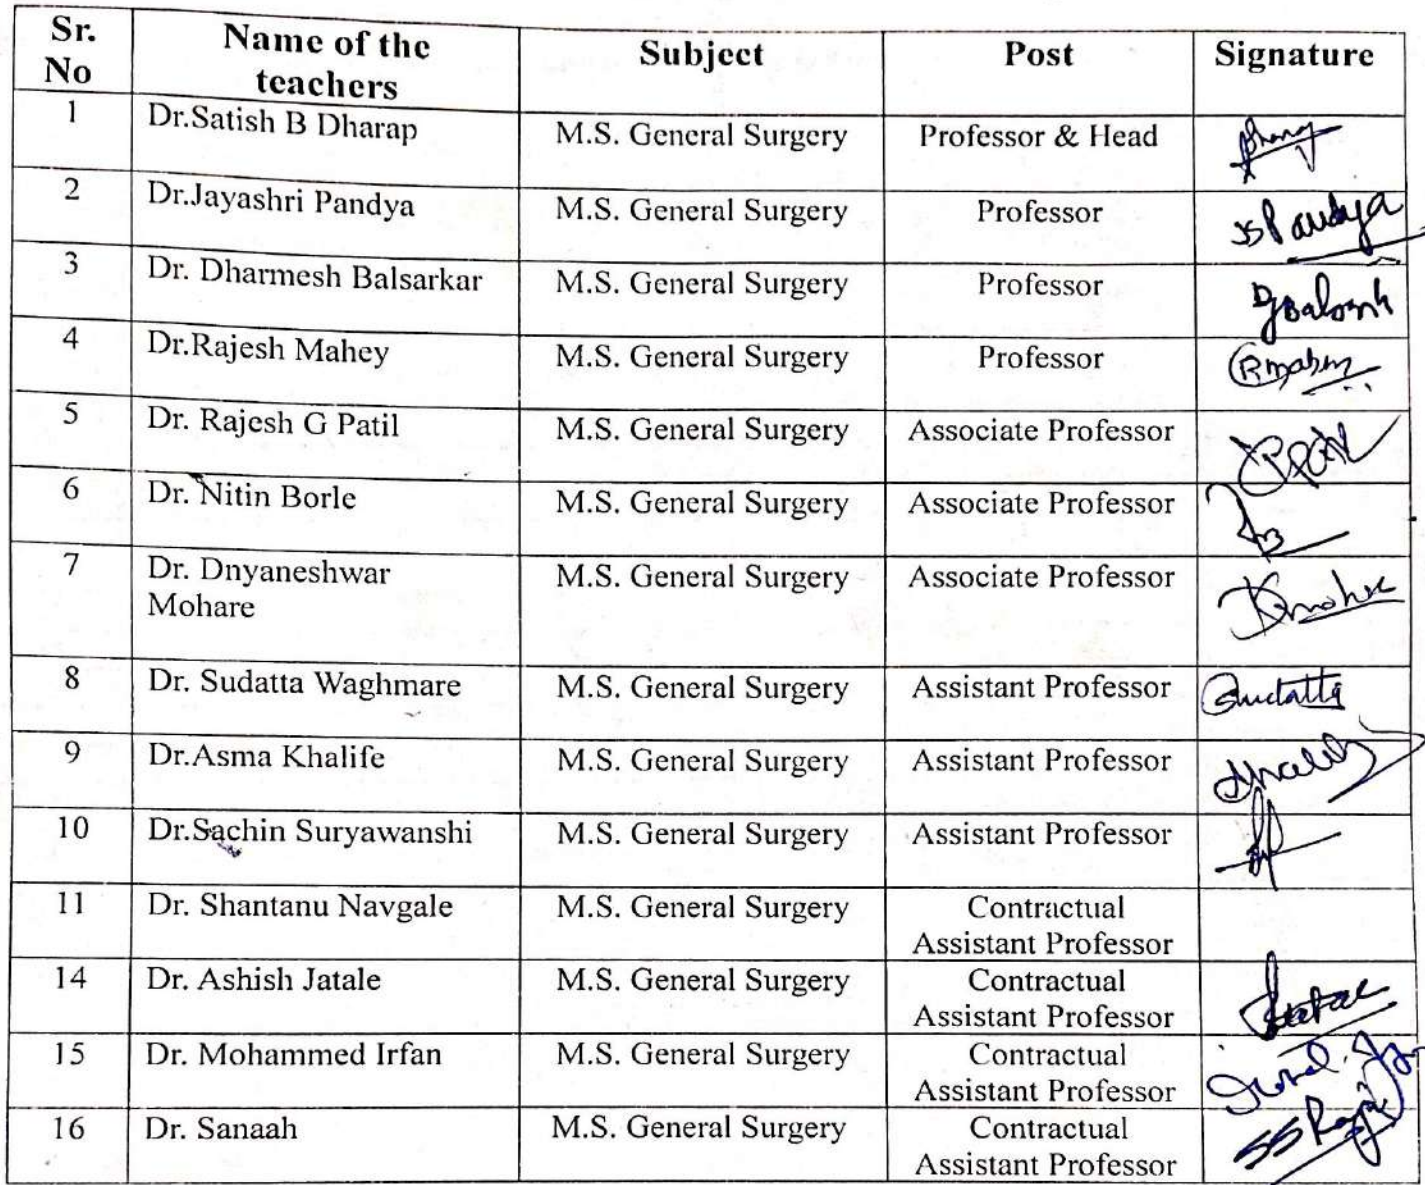 Sr. No Name of the teachers Subject Post Signature
1 Dr.Satish B Dharap M.S. General Surgery Professor & Head
2 Dr.Jayashri Pandya M.S. General Surgery Professor SSPandya
3 Dr. Dharmesh Balsarkar M.S. General Surgery Professor
4 Dr.Rajesh Mahey M.S. General Surgery Professor
5 Dr. Rajesh G Patil M.S. General Surgery Associate Professor
6 Dr. Nitin Borle M.S. General Surgery Associate Professor
7 Dr. Dnyaneshwar M.S. General Surgery Associate Professor
Mohare
8 Dr. Sudatta Waghmare M.S. General Surgery Assistant Professor
9 Dr.Asma Khalife M.S. General Surgery Assistant Professor
10 Dr.Sachin Suryawanshi M.S. General Surgery Assistant Professor
11 Dr. Shantanu Navgale M.S. General Surgery Contractual
Assistant Professor
14 Dr. Ashish Jatale M.S. General Surgery Contractual
Assistant Professor
15 Dr. Mohammed Irfan M.S. General Surgery Contractual
Assistant Professor
16 Dr. Sanaah M.S. General Surgery Contractual
Assistant Professor